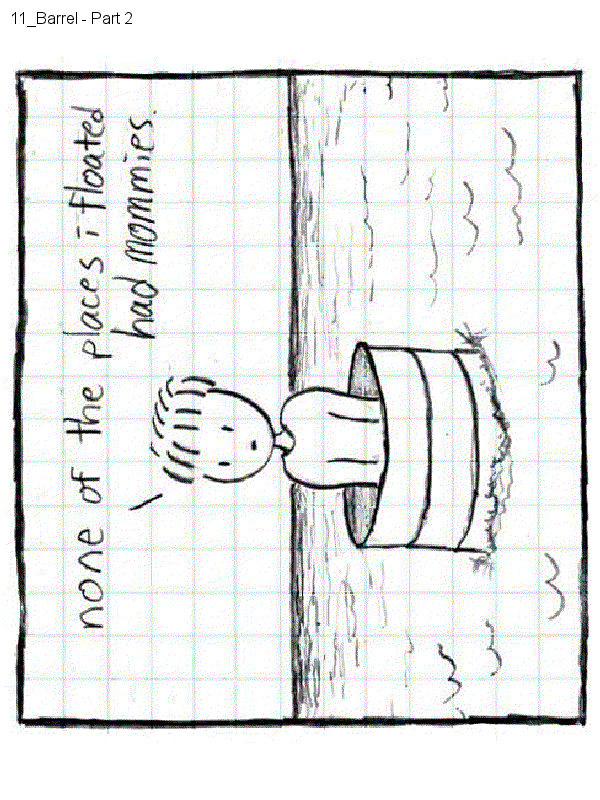 11_Barrel - Part 2
none of the places i floated
had mommies.